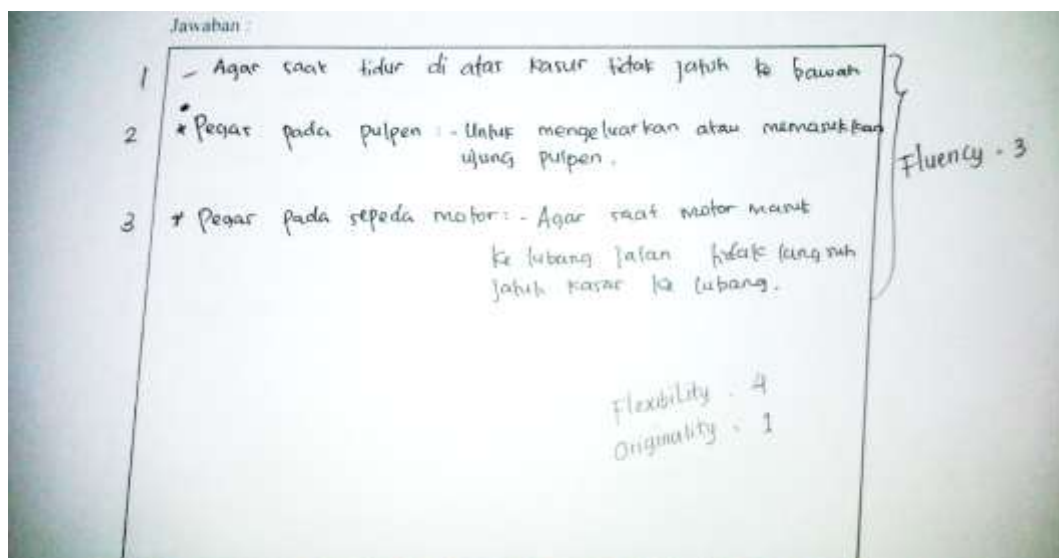 Jawaban :
1 - Agar saat tidur di atas kasur tidak jatuh ke bawah
2 * Pegas pada pulpen : - Untuk mengeluarkan atau memasukkan
ujung pulpen.
Fluency - 3
3 * Pegas pada sepeda motor : - Agar saat motor masuk
ke lubang jalan tidak langsung
jatuh kasar ke lubang.
Flexibility . 4
Originality . 1